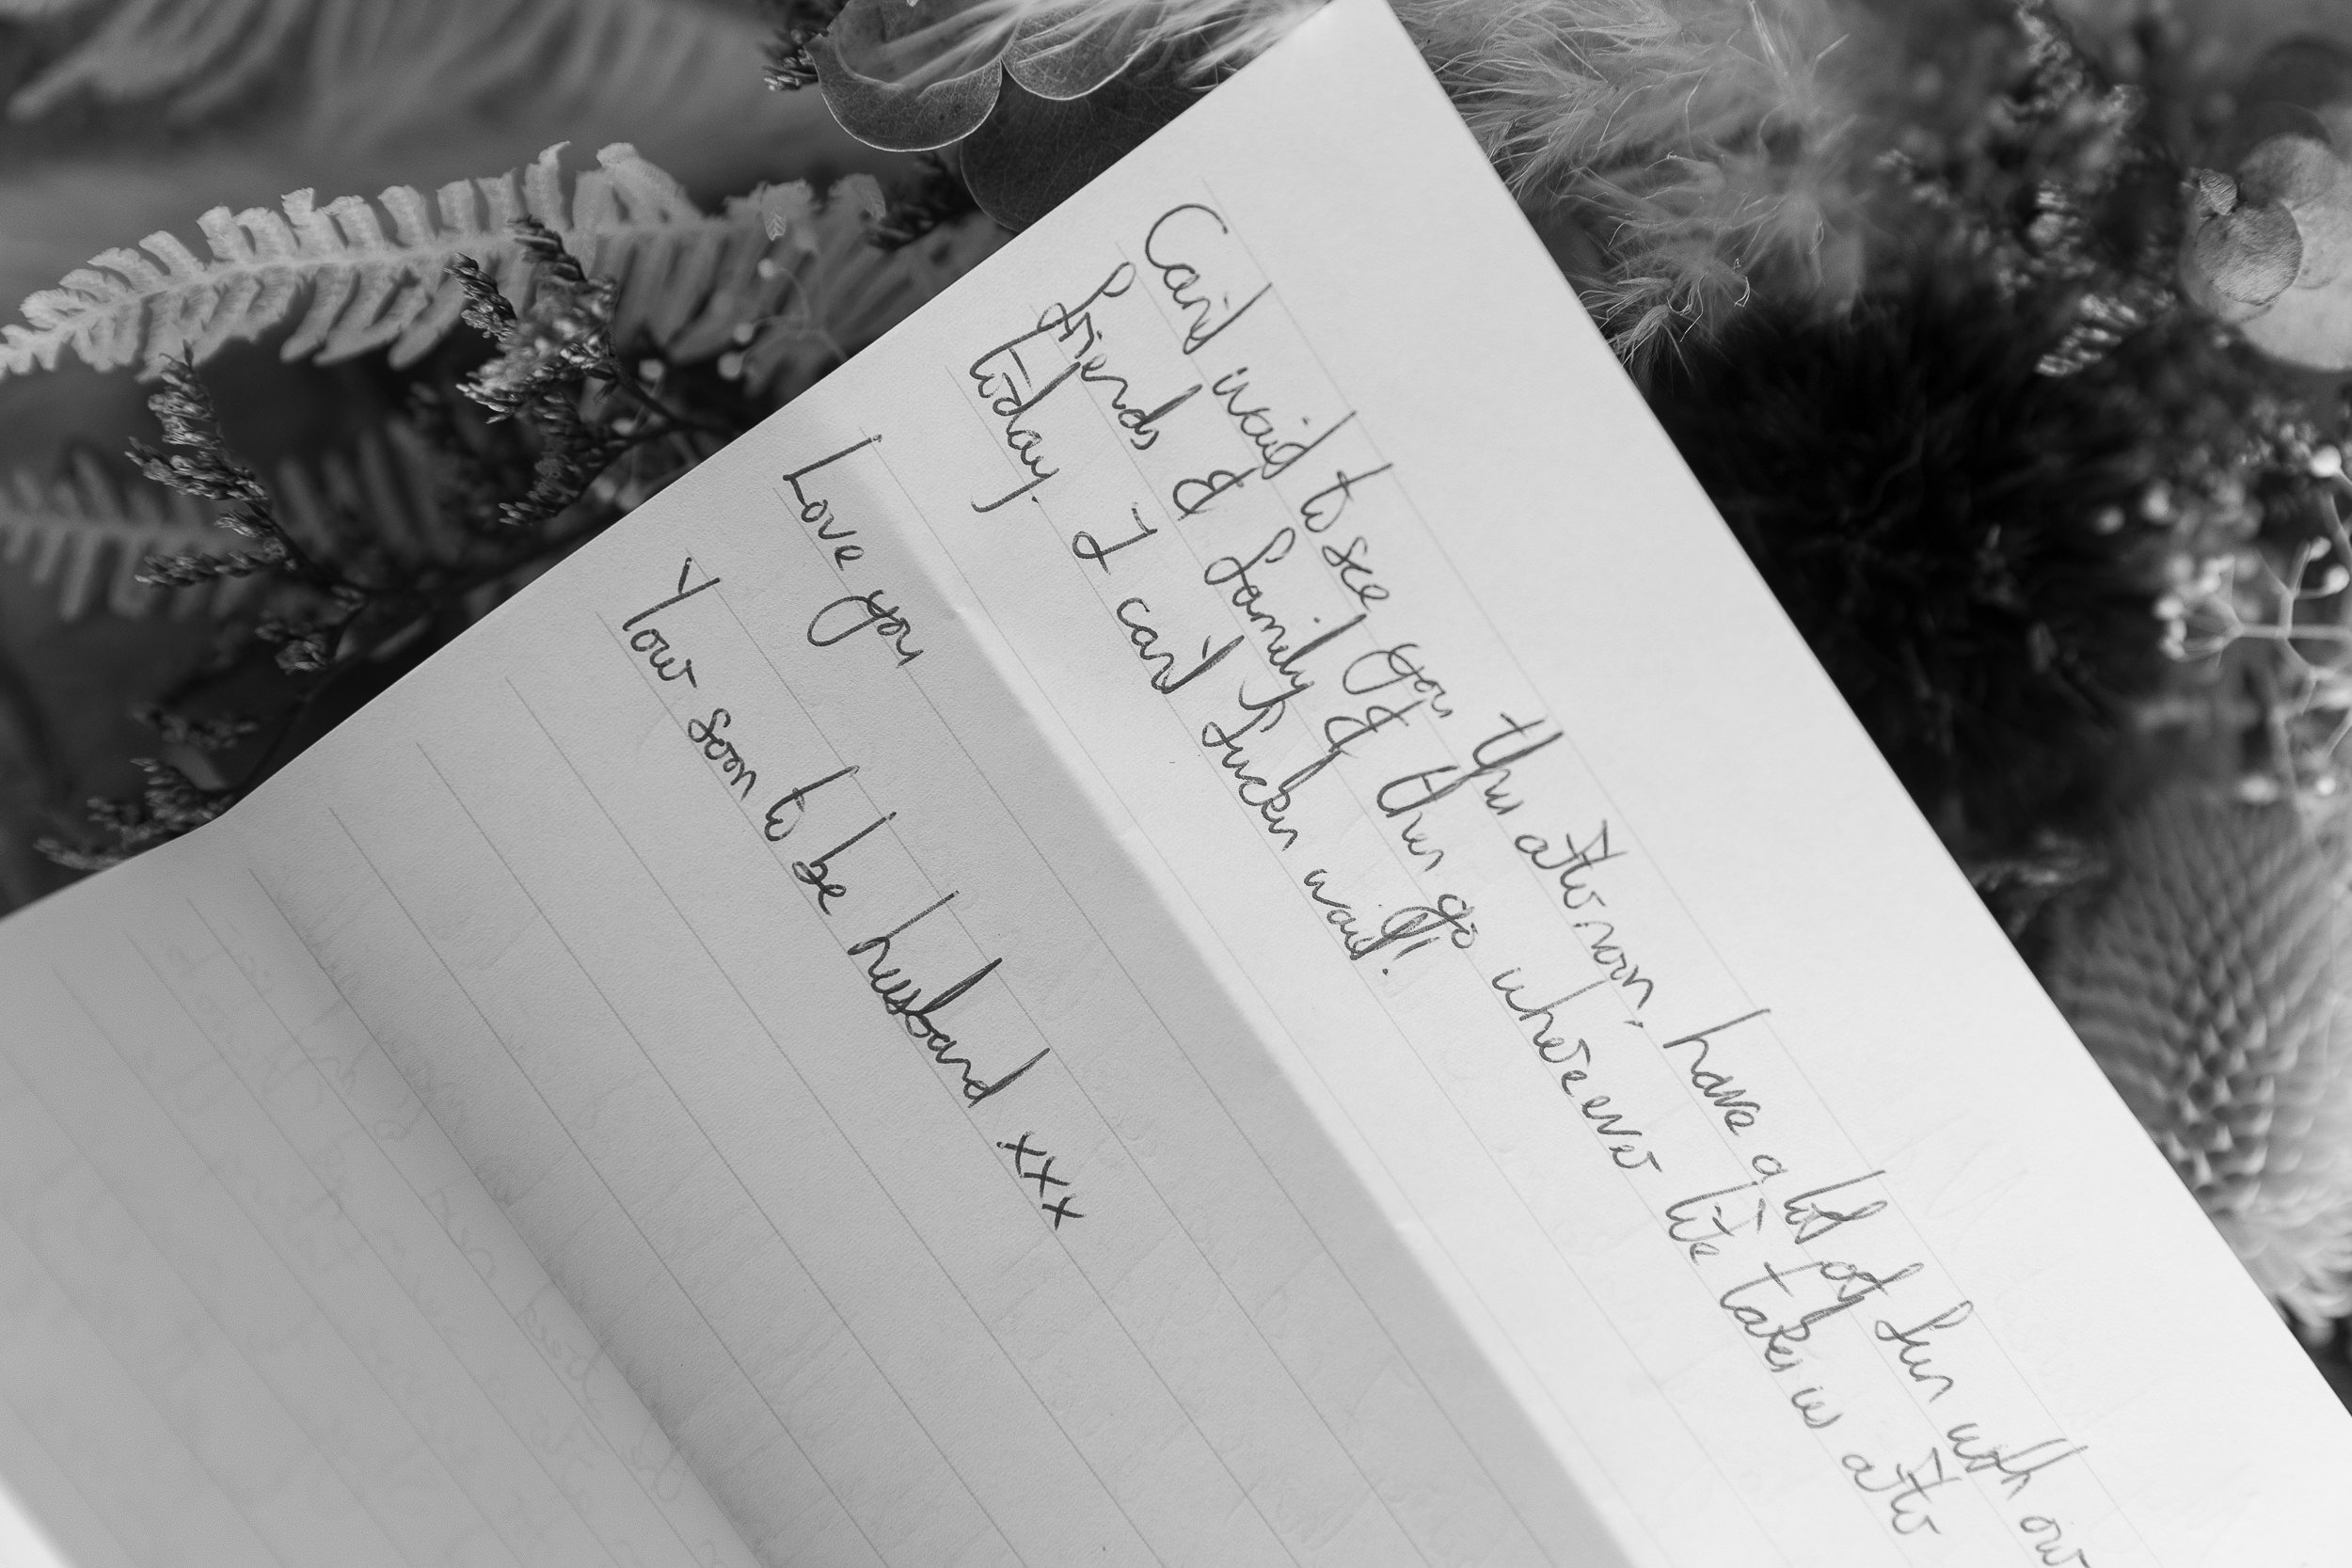 Can't wait to see you this afternoon, have a lot of fun with our
friends & family & then go where ever life takes us after
today. I can't fucken wait!
Love you
Your soon to be husband xxx